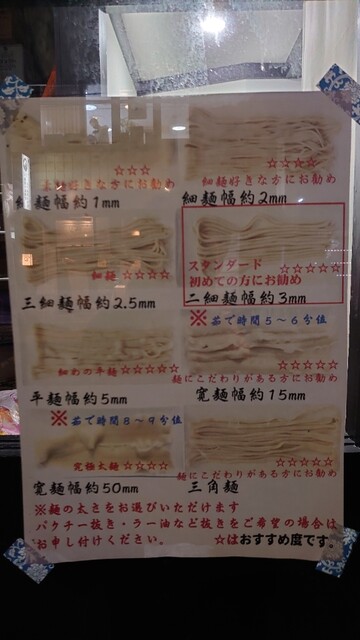 ☆☆☆
好きな方にお勧め
麺幅約1mm
☆☆☆☆
細麺好きな方にお勧め
細麺幅約2mm
細麺 ☆☆☆☆
三細麺幅約2.5mm
スタンダード ☆☆☆☆☆
初めての方にお勧め
二細麺幅約3mm
細めの平麺 ☆☆☆☆☆
平麺幅約5mm
※茹で時間5~6分位
☆☆☆☆☆
麺にこだわりがある方にお勧め
寛麺幅約15mm
※茹で時間8~9分位
究極太麺 ☆☆☆☆
寛麺幅約50mm
☆☆☆☆☆
麺にこだわりがある方にお勧め
三角麺
※麺の太さをお選びいただけます
パクチー抜き・ラー油など抜きをご希望の場合は
お申し付けください。 ☆はおすすめ度です。